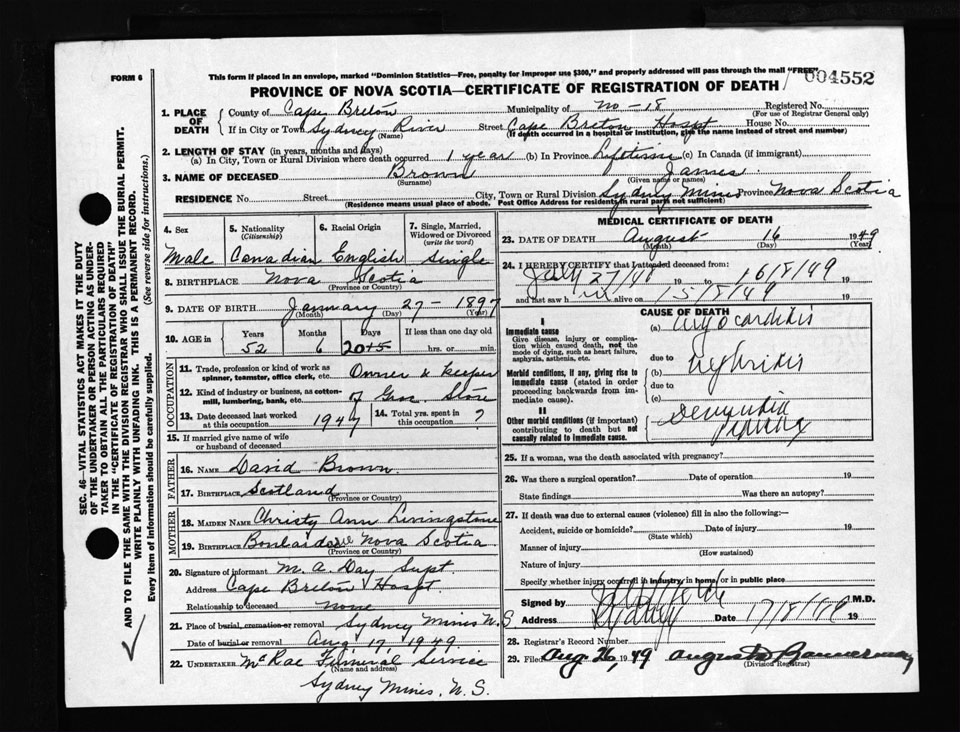 FORM 6
This form if placed in an envelope, marked "Dominion Statistics—Free, penalty for improper use $300," and properly addressed will pass through the mail "FREE"
004552
PROVINCE OF NOVA SCOTIA—CERTIFICATE OF REGISTRATION OF DEATH
1. PLACE OF DEATH
County of Cape Breton Municipality of No - 18 Registered No.
(For use of Registrar General only)
If in City or Town Sydney River Street Cape Breton Hospt House No.
(Name) (If death occurred in a hospital or institution, give the name instead of street and number)
2. LENGTH OF STAY (in years, months and days)
(a) In City, Town or Rural Division where death occurred 1 year (b) In Province Lifetime (c) In Canada (if immigrant)
3. NAME OF DECEASED Brown James
(Surname) (Given name or names)
RESIDENCE No. Street City, Town or Rural Division Sydney Mines Province Nova Scotia
(Residence means usual place of abode. Post Office Address for residents in rural parts not sufficient)
4. Sex 5. Nationality (Citizenship) 6. Racial Origin 7. Single, Married, Widowed or Divorced (write the word)
Male Canadian English Single
8. BIRTHPLACE Nova Scotia
(Province or Country)
9. DATE OF BIRTH January 27 - 1897
(Month) (Day) (Year)
10. AGE in Years Months Days If less than one day old
52 6 20 hrs. or min.
OCCUPATION
11. Trade, profession or kind of work as spinner, teamster, office clerk, etc. Owner & Keeper
12. Kind of industry or business, as cotton-mill, lumbering, bank, etc. of Groc. Store
13. Date deceased last worked at this occupation 1947 14. Total yrs. spent in this occupation ?
15. If married give name of wife or husband of deceased
FATHER
16. NAME David Brown
17. BIRTHPLACE Scotland
(Province or Country)
MOTHER
18. MAIDEN NAME Christy Ann Livingstone
19. BIRTHPLACE Boularderie Nova Scotia
(Province or Country)
20. Signature of informant M. A. Day Supt.
Address Cape Breton Hospt.
Relationship to deceased none
21. Place of burial, cremation or removal Sydney Mines N. S
Date of burial or removal Aug 17, 1949
22. UNDERTAKER McRae Funeral Service
(Name and address)
Sydney Mines, N. S.
MEDICAL CERTIFICATE OF DEATH
23. DATE OF DEATH August 16 1949
(Month) (Day) (Year)
24. I HEREBY CERTIFY that I attended deceased from:
July 27/48 19 to 16/8/49 19
and last saw him alive on 15/8/49 19
CAUSE OF DEATH
I
Immediate cause
Give disease, injury, or complication which caused death, not the mode of dying, such as heart failure, asphyxia, asthenia, etc.
(a) Myocarditis
due to
Morbid conditions, if any, giving rise to immediate cause (stated in order proceeding backwards from immediate cause).
(b) Nephritis
due to
(c)
II
Other morbid conditions (if important) contributing to death but not causally related to immediate cause.
Dementia Praecox
25. If a woman, was the death associated with pregnancy?
26. Was there a surgical operation? Date of operation 19
State findings Was there an autopsy?
27. If death was due to external causes (violence) fill in also the following:—
Accident, suicide or homicide? Date of injury 19
(State which)
Manner of injury
(How sustained)
Nature of injury
Specify whether injury occurred in industry, in home, or in public place
Signed by M.D.
Address Sydney Date 17/8/49 19
28. Registrar's Record Number
29. Filed Aug. 26, 1949 Augusta Bannerman
(Division Registrar)
SEC. 46—VITAL STATISTICS ACT MAKES IT THE DUTY
OF THE UNDERTAKER OR PERSON ACTING AS UNDER-
TAKER TO OBTAIN ALL THE PARTICULARS REQUIRED
IN THE "CERTIFICATE OF REGISTRATION OF DEATH"
AND TO FILE THE SAME WITH THE DIVISION REGISTRAR WHO SHALL ISSUE THE BURIAL PERMIT.
WRITE PLAINLY WITH UNFADING INK. THIS IS A PERMANENT RECORD.
Every item of information should be carefully supplied. (See reverse side for instructions.)